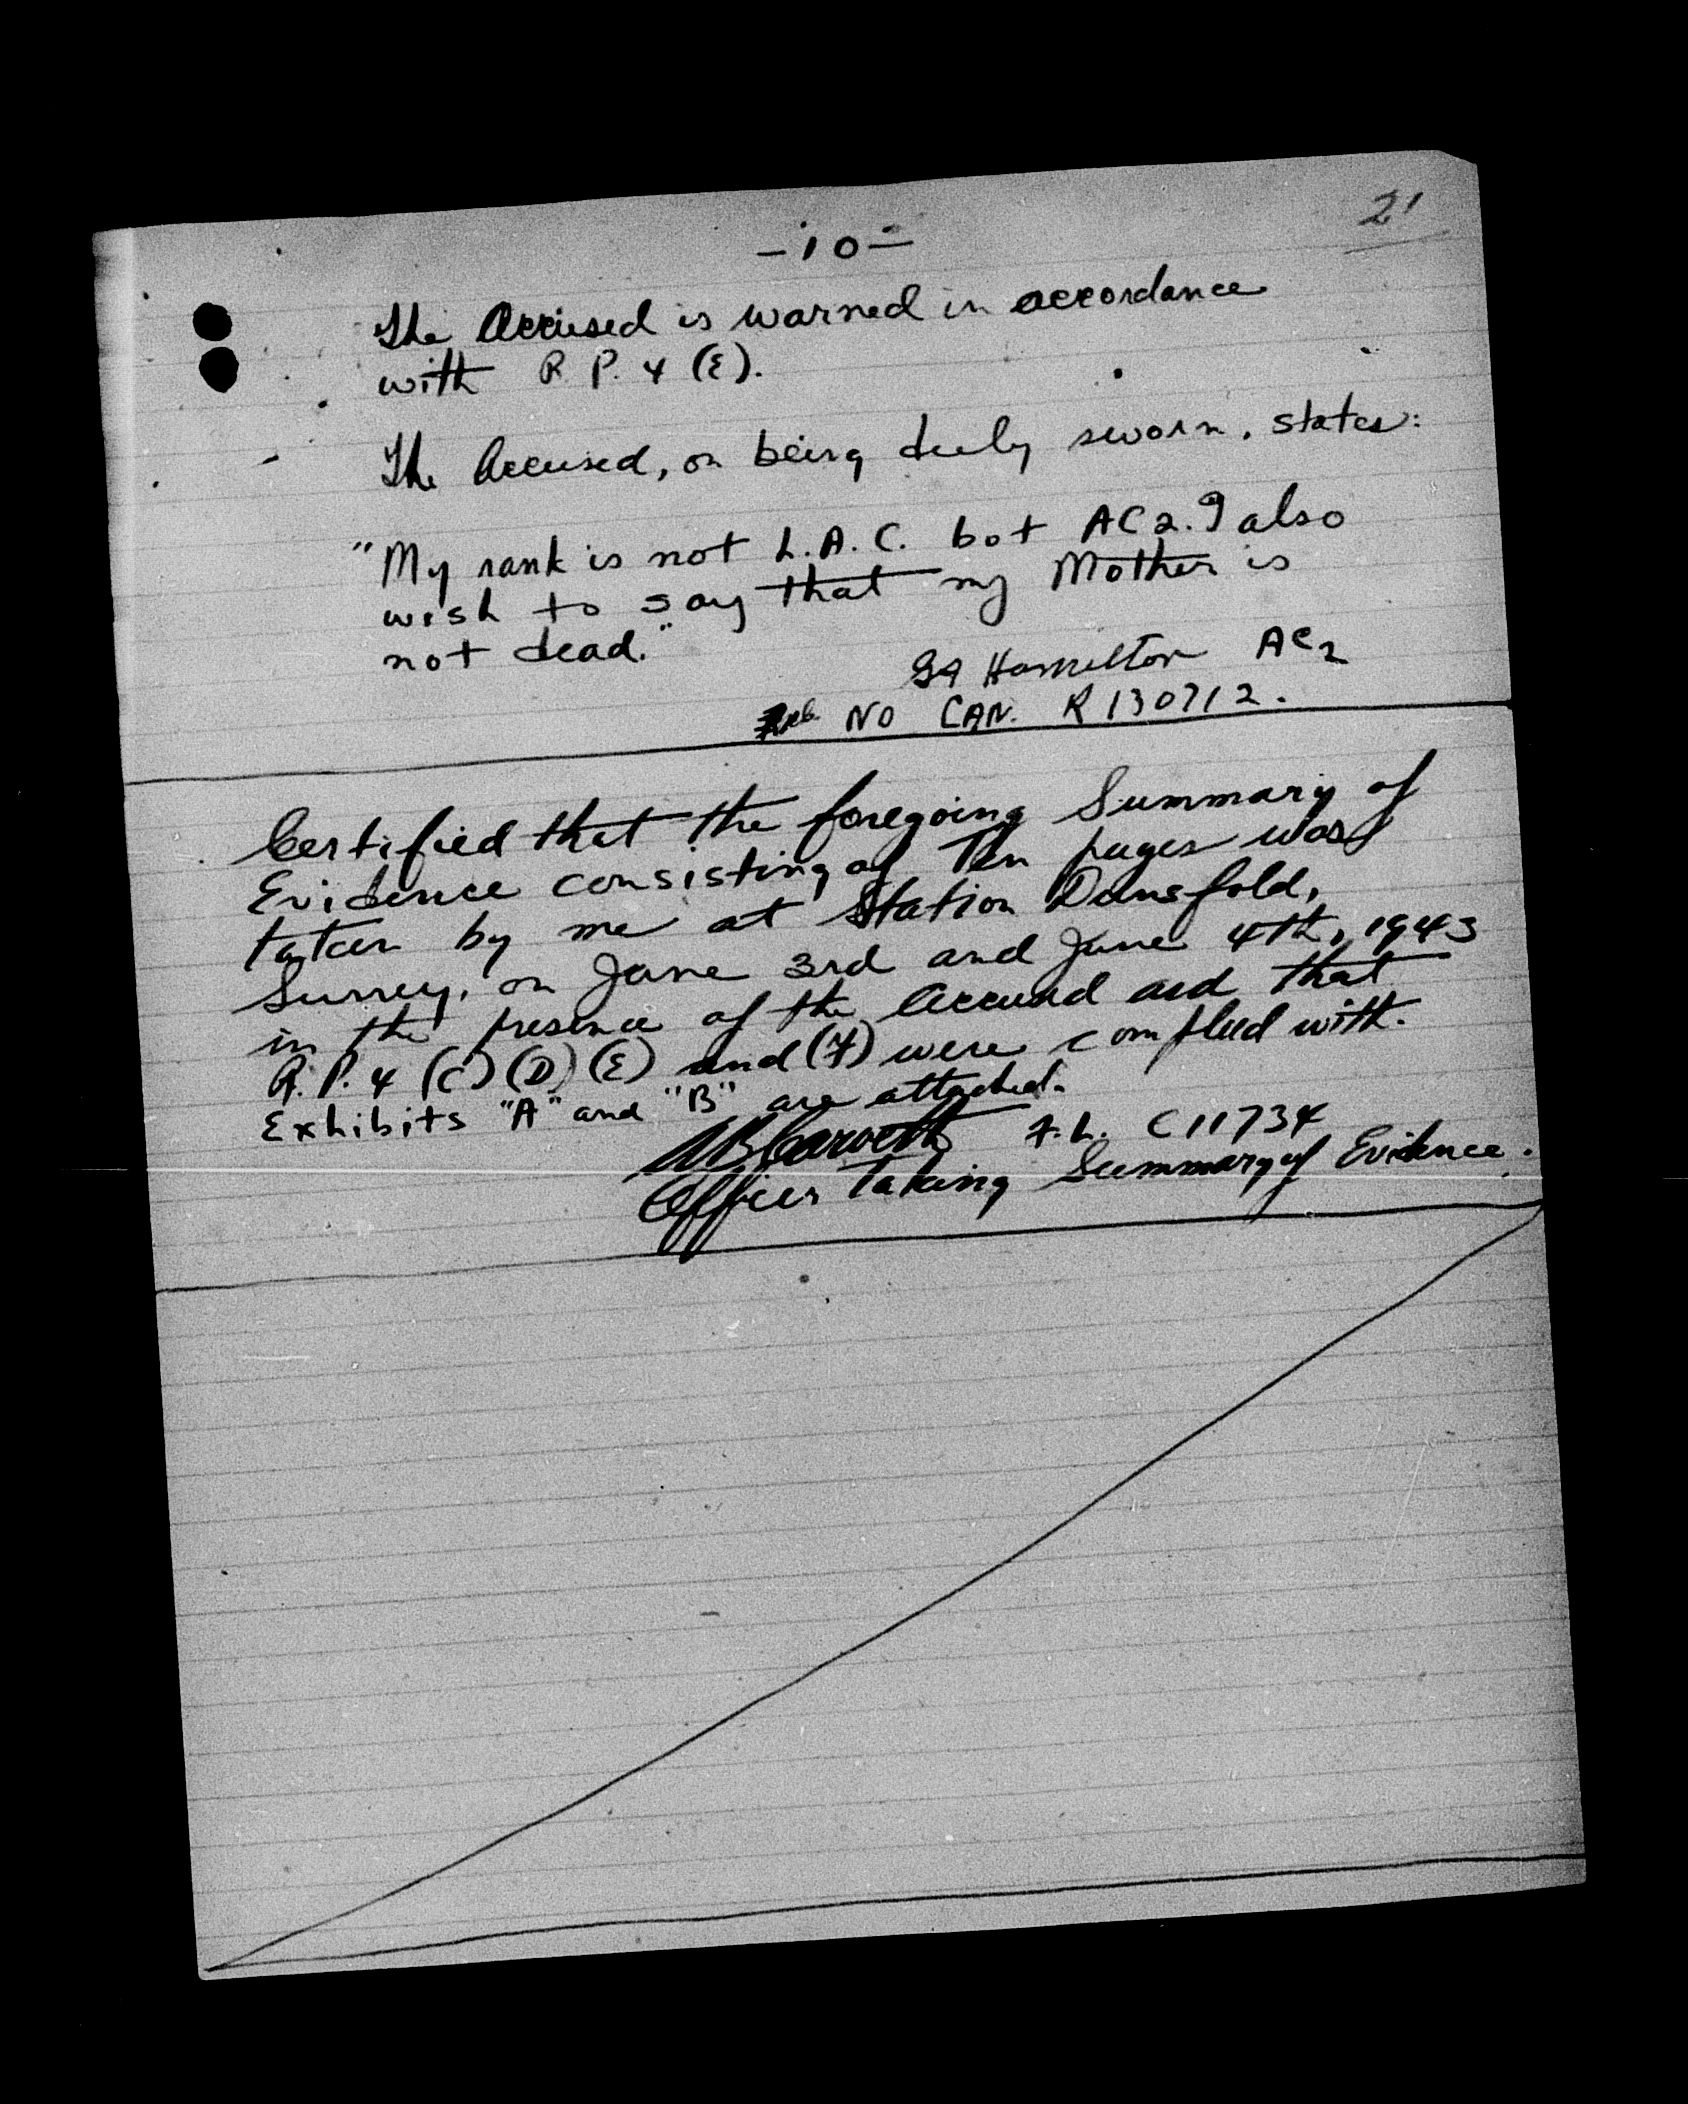 21
-10-
The Accused is warned in accordance
with R P. 4 (E).
The Accused, on being duly sworn, states:
"My rank is not L.A.C. bot AC2. I also
wish to say that my Mother is
not dead."
GA Hamilton AC2
NO CAN. R 130712.
Certified that the foregoing Summary of
Evidence consisting of Ten pages was
taken by me at Station Dunsfold,
Surrey, on June 3rd and June 4th, 1943
in the presence of the Accused and that
R.P. 4 (C) (D) (E) and (F) were complied with.
Exhibits "A" and "B" are attached.
F.L. C11734
Officer Taking Summary of Evidence.